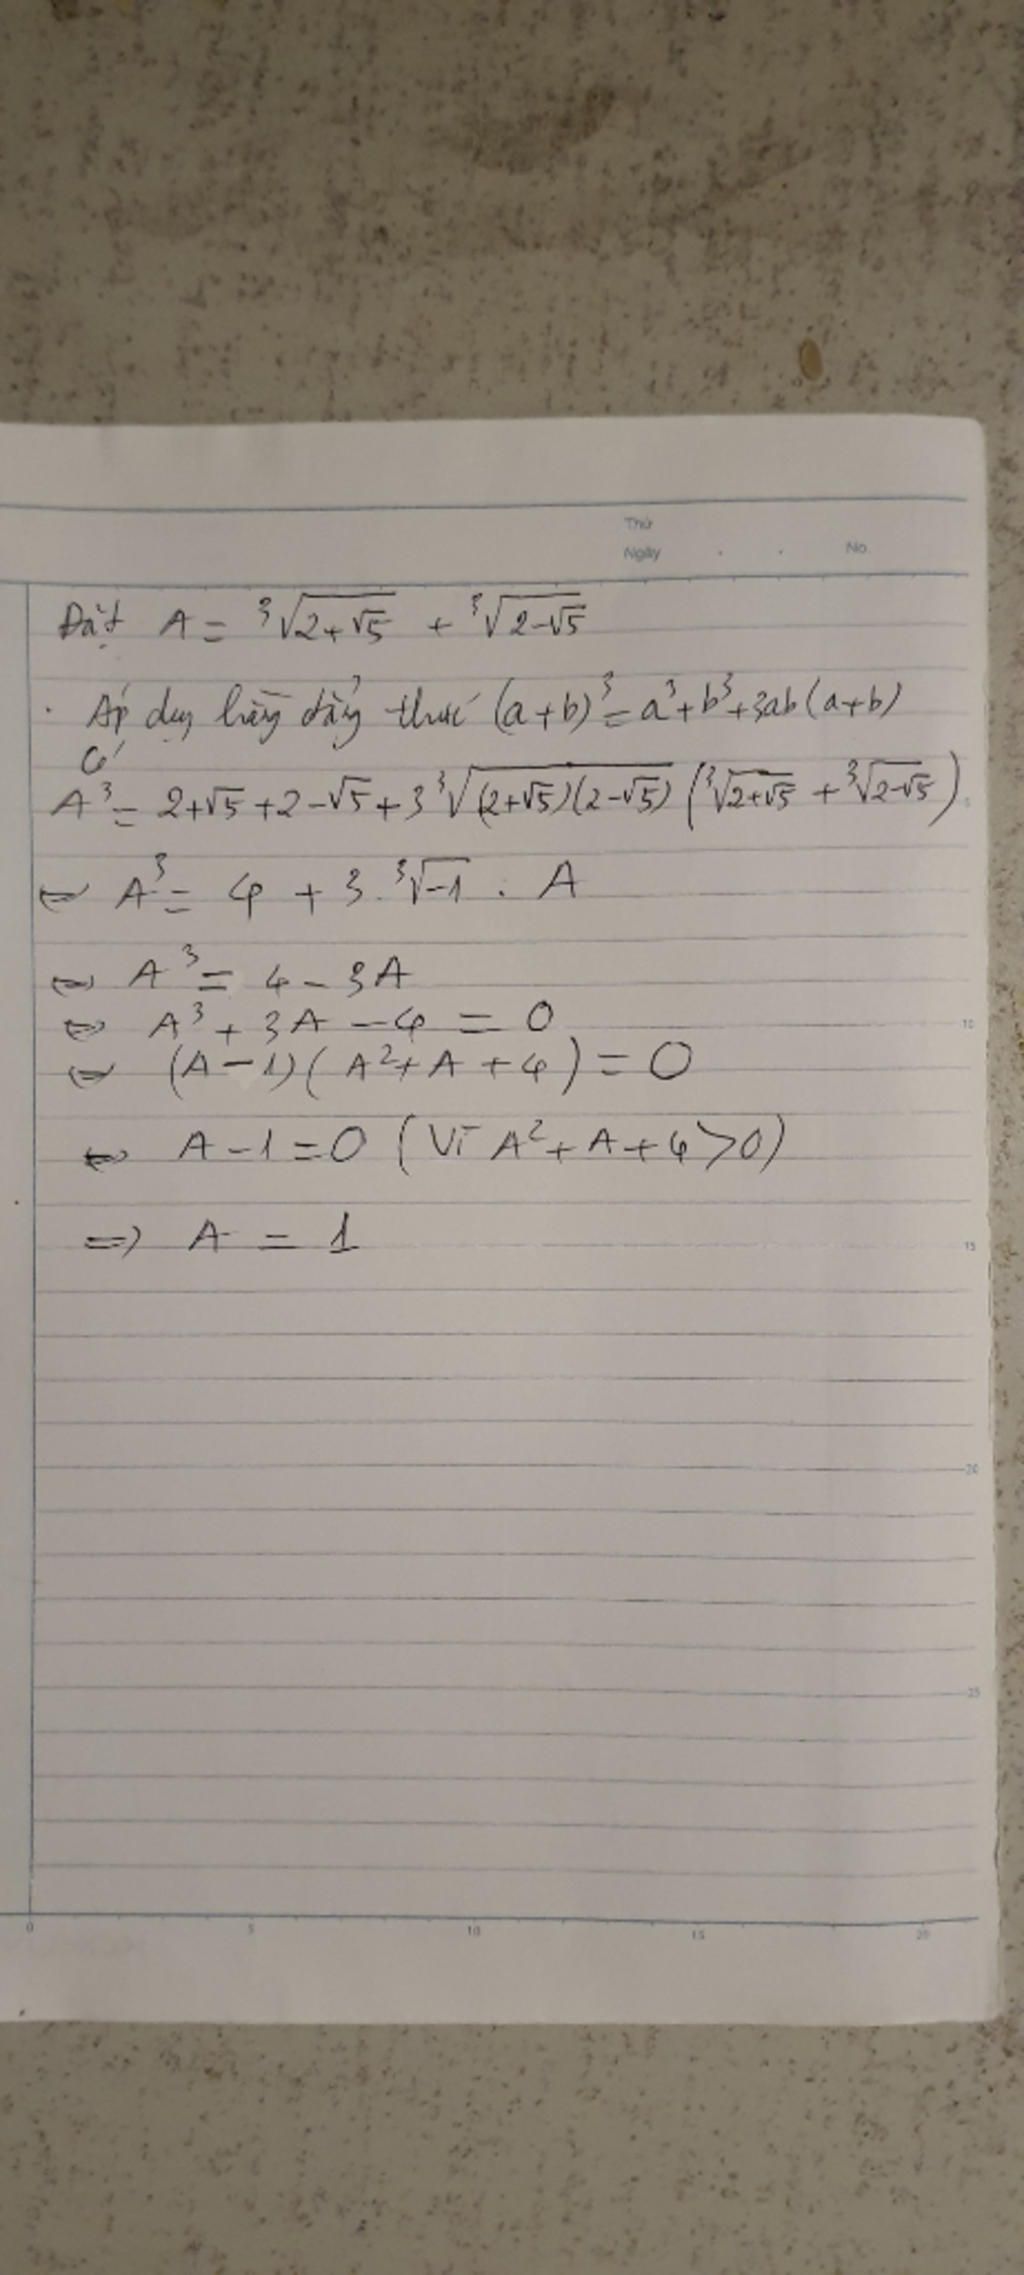 Thứ
Ngày . . No.
Đặt A = ³√(2+√5) + ³√(2-√5)
. Áp dụng hằng đẳng thức (a+b)³ = a³+b³+3ab(a+b)
Có
A³ = 2+√5+2-√5+3 ³√((2+√5)(2-√5)) (³√(2+√5) + ³√(2-√5))
⇔ A³ = 4 + 3 . ³√-1 . A
⇔ A³ = 4 - 3A
⇔ A³ + 3A - 4 = 0
⇔ (A-1)(A²+A+4) = 0
⇔ A-1=0 (Vì A²+A+4>0)
=> A = 1
5
10
15
20
25
0 5 10 15 20